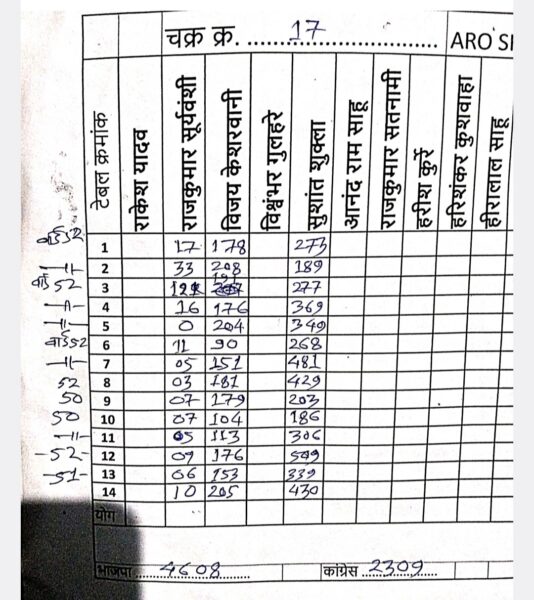 चक्र क्र. 17 ARO
टेबल क्रमांक राकेश यादव राजकुमार सूर्यवंशी विजय केशरवानी विश्वंभर गुलहरे सुशांत शुक्ला आनंद राम साहू राजकुमार सतनामी हरीश कुर्रे हरिशंकर कुशवाहा हीरालाल साहू
वार्ड 52 1 17 178 273
-11- 2 33 208 189
वार्ड 52 3 277
-11- 4 16 176 369
-11- 5 0 204 349
वार्ड 52 6 11 90 268
-11- 7 05 151 481
52 8 03 181 429
50 9 07 179 203
50 10 07 104 186
-11- 11 05 113 306
-52- 12 09 176 509
-51- 13 06 153 339
14 10 205 430
योग
भाजपा 4608 कांग्रेस 2309